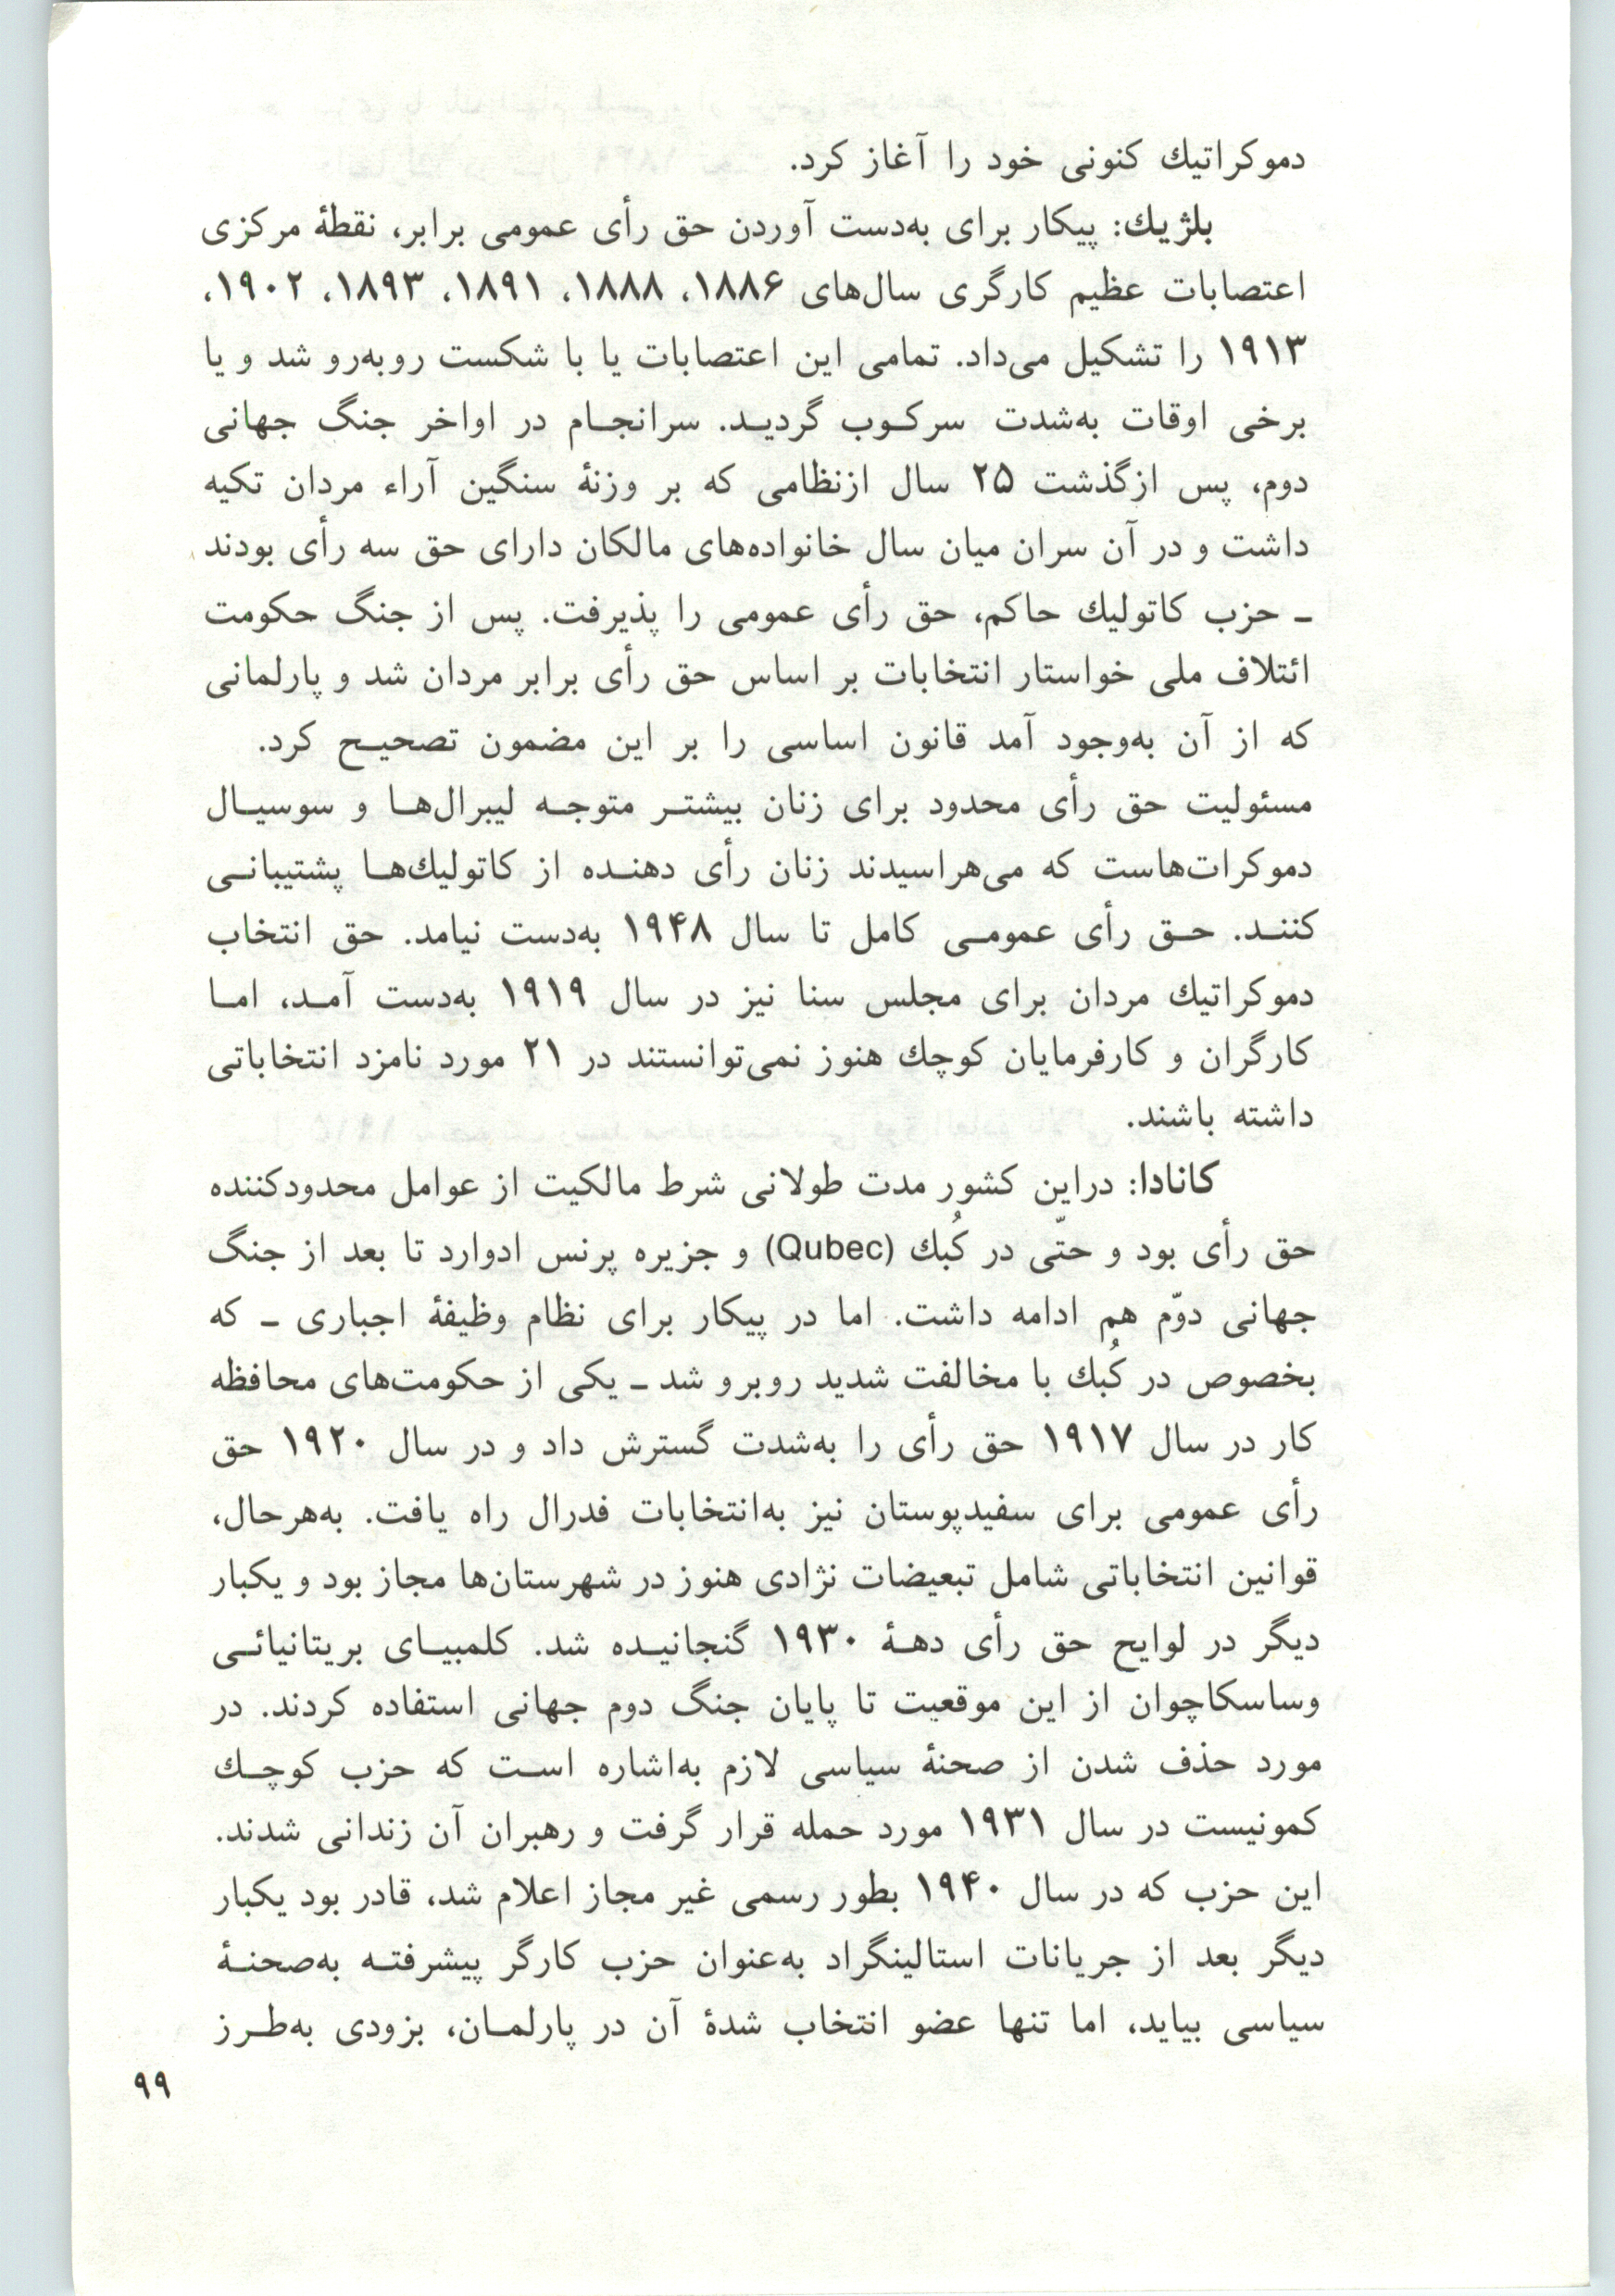 دموکراتیك کنونی خود را آغاز کرد.
بلژیك: پیکار برای به‌دست آوردن حق رأی عمومی برابر، نقطهٔ مرکزی
اعتصابات عظیم کارگری سال‌های ۱۸۸۶، ۱۸۸۸، ۱۸۹۱، ۱۸۹۳، ۱۹۰۲،
۱۹۱۳ را تشکیل می‌داد. تمامی این اعتصابات یا با شکست روبه‌رو شد و یا
برخی اوقات به‌شدت سرکـوب گردیـد. سرانجـام در اواخر جنگ جهانی
دوم، پس ازگذشت ۲۵ سال ازنظامی که بر وزنهٔ سنگین آراء مردان تکیه
داشت و در آن سران میان سال خانواده‌های مالکان دارای حق سه رأی بودند
ـ حزب کاتولیك حاکم، حق رأی عمومی را پذیرفت. پس از جنگ حکومت
ائتلاف ملی خواستار انتخابات بر اساس حق رأی برابر مردان شد و پارلمانی
که از آن به‌وجود آمد قانون اساسی را بر این مضمون تصحیـح کرد.
مسئولیت حق رأی محدود برای زنان بیشتـر متوجـه لیبرال‌هـا و سوسیـال
دموکرات‌هاست که می‌هراسیدند زنان رأی دهنـده از کاتولیك‌هـا پشتیبانـی
کننـد. حـق رأی عمومـی کامل تا سال ۱۹۴۸ به‌دست نیامد. حق انتخاب
دموکراتیك مردان برای مجلس سنا نیز در سال ۱۹۱۹ به‌دست آمـد، امـا
کارگران و کارفرمایان کوچك هنوز نمی‌توانستند در ۲۱ مورد نامزد انتخاباتی
داشته باشند.
کانادا: دراین کشور مدت طولانی شرط مالکیت از عوامل محدودکننده
حق رأی بود و حتّی در کُبك (Qubec) و جزیره پرنس ادوارد تا بعد از جنگ
جهانی دوّم هم ادامه داشت. اما در پیکار برای نظام وظیفهٔ اجباری ـ که
بخصوص در کُبك با مخالفت شدید روبرو شد ـ یکی از حکومت‌های محافظه
کار در سال ۱۹۱۷ حق رأی را به‌شدت گسترش داد و در سال ۱۹۲۰ حق
رأی عمومی برای سفیدپوستان نیز به‌انتخابات فدرال راه یافت. به‌هرحال،
قوانین انتخاباتی شامل تبعیضات نژادی هنوز در شهرستان‌ها مجاز بود و یکبار
دیگر در لوایح حق رأی دهـهٔ ۱۹۳۰ گنجانیـده شد. کلمبیـای بریتانیائـی
وساسکاچوان از این موقعیت تا پایان جنگ دوم جهانی استفاده کردند. در
مورد حذف شدن از صحنهٔ سیاسی لازم به‌اشاره اسـت که حزب کوچـك
کمونیست در سال ۱۹۳۱ مورد حمله قرار گرفت و رهبران آن زندانی شدند.
این حزب که در سال ۱۹۴۰ بطور رسمی غیر مجاز اعلام شد، قادر بود یکبار
دیگر بعد از جریانات استالینگراد به‌عنوان حزب کارگر پیشرفتـه به‌صحنـهٔ
سیاسی بیاید، اما تنها عضو انتخاب شدهٔ آن در پارلمـان، بزودی به‌طـرز
۹۹